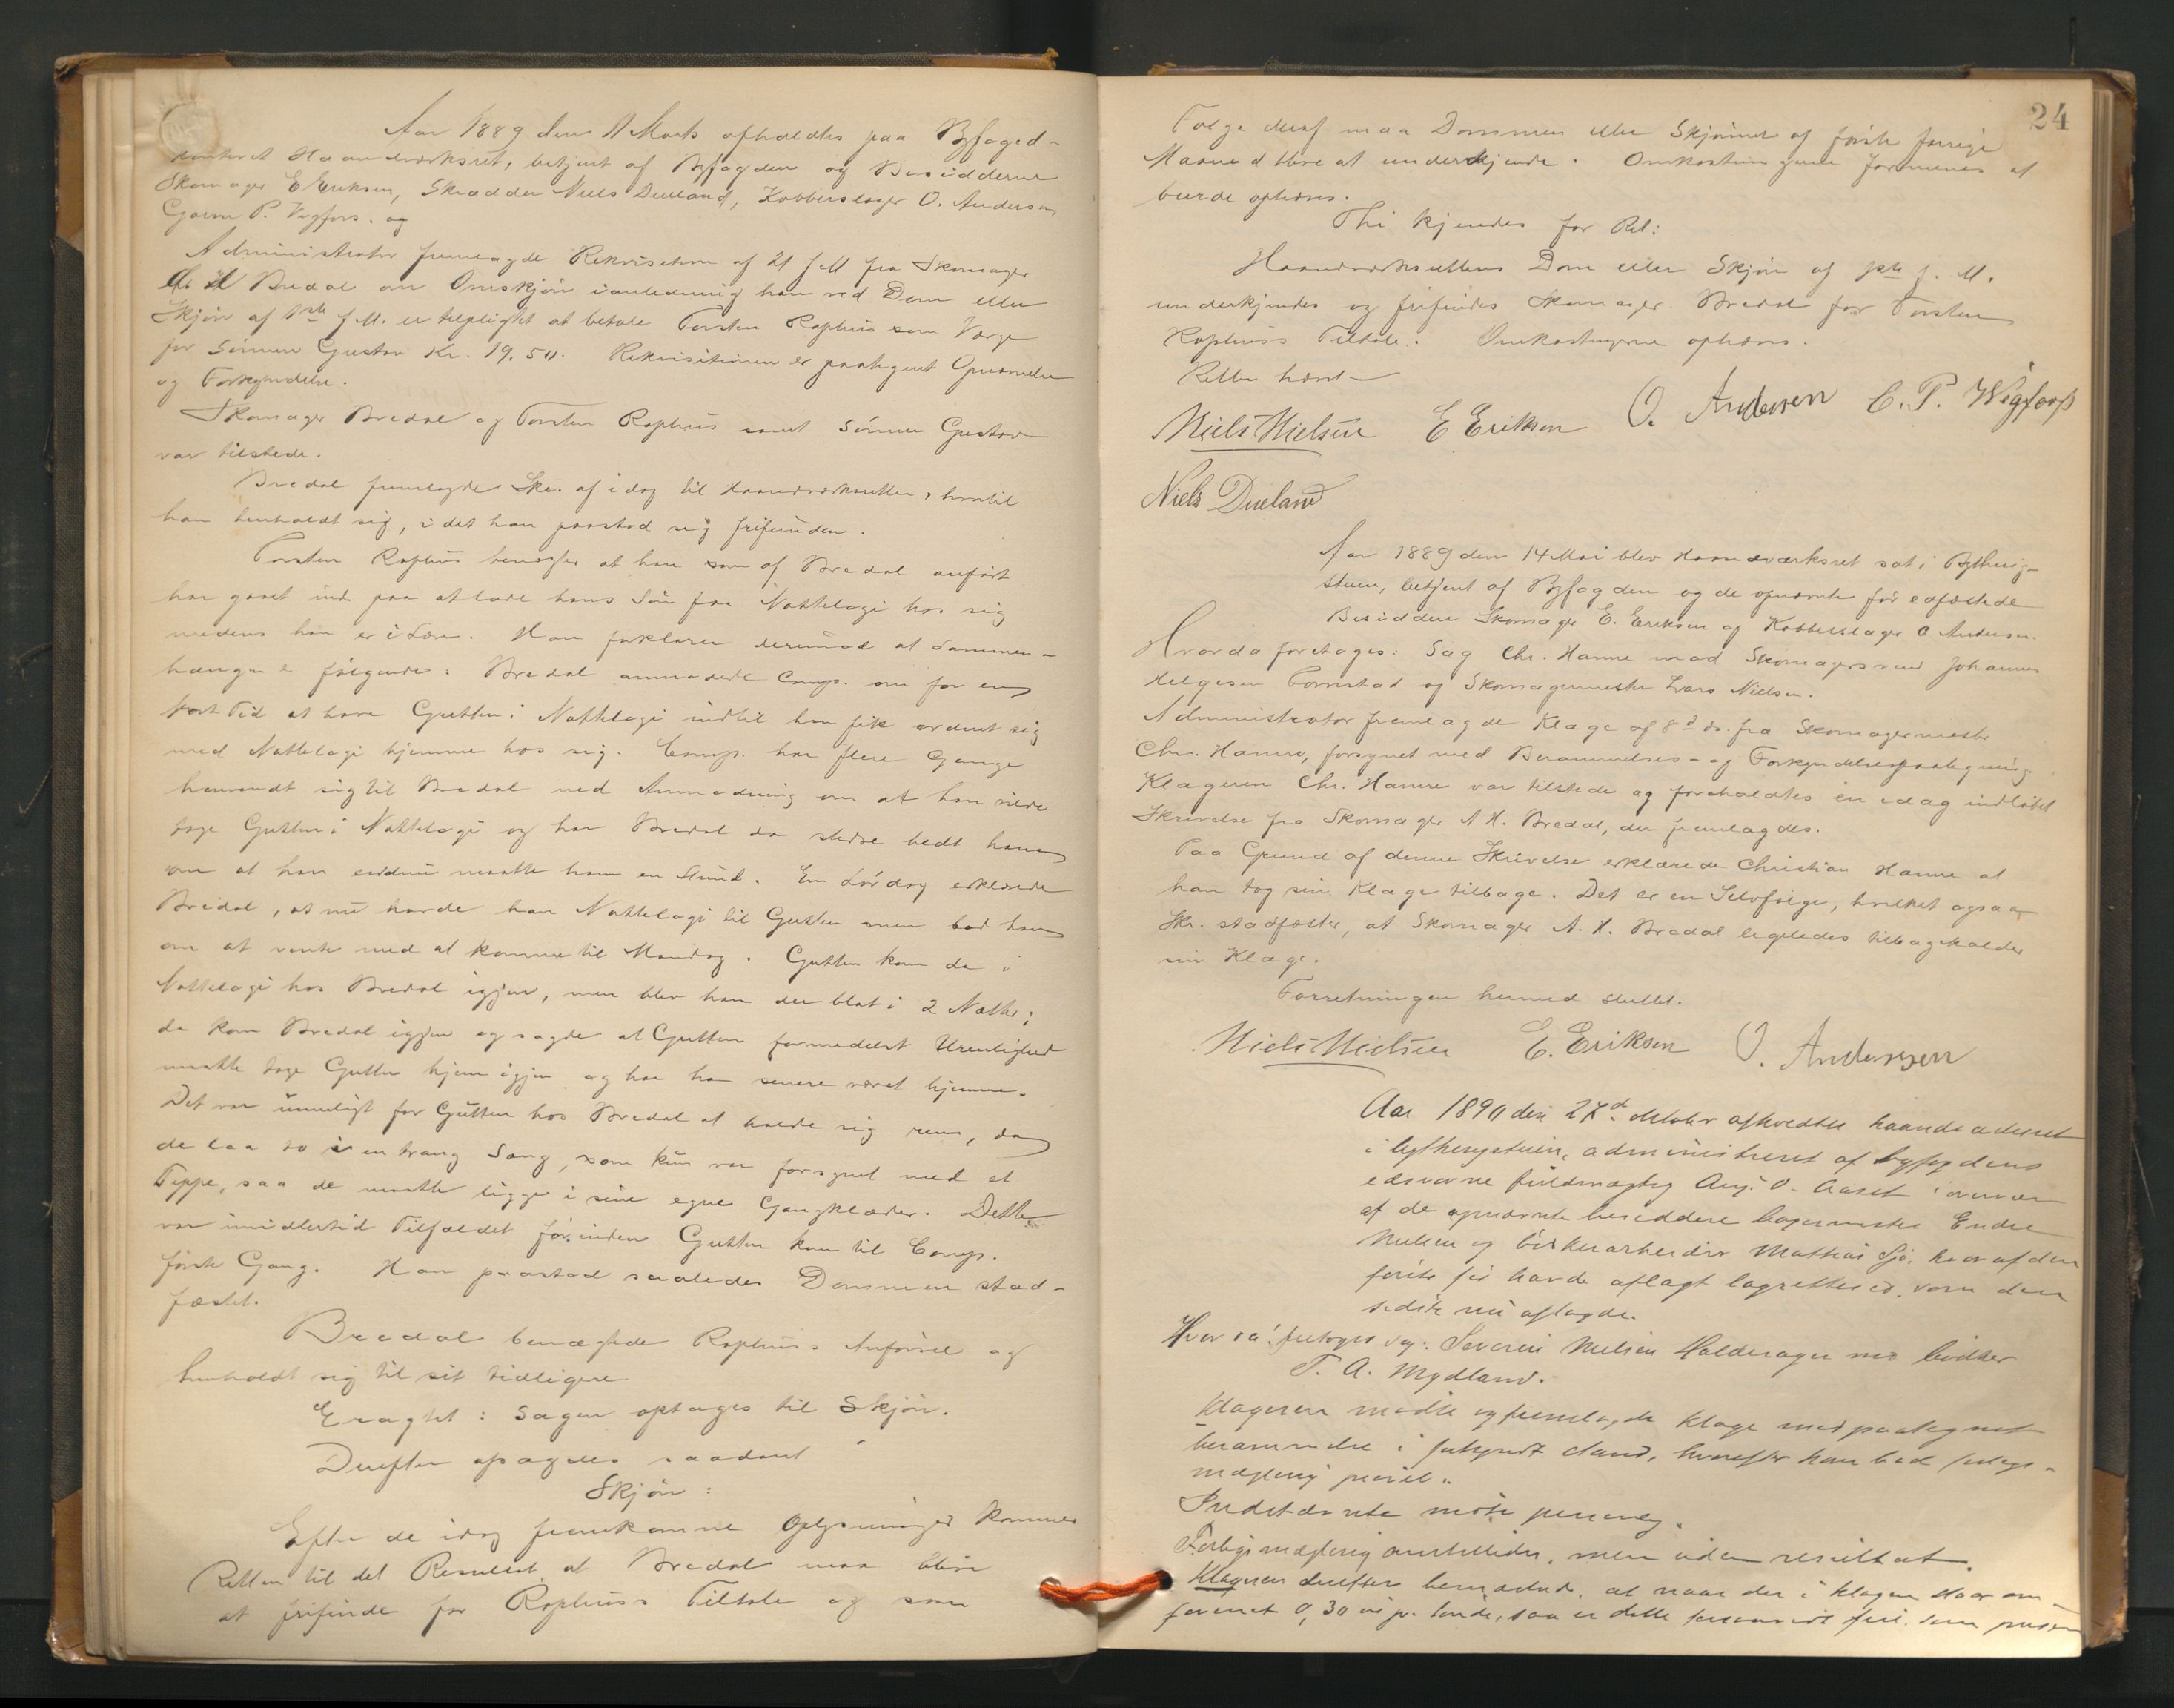 Aar 1889 den 11 Marts afholdtes paa Byfoged-
kontoret Haandværksret, betjent af Byfogden og Bisidderne
Skomager E Eriksen, Skrædder Niels Dueland, Kobberslager O. Andersen
Garver P. Vigfors. og
Administrator fremlagde Rekvisition af 21 f M fra Skomager
A H Bredal om Omskjøn i anledning han ved Dom eller
Skjøn af 1ste f M. er tilpligtet at betale Torsten Ropheus som Værge
for Sønnen Gustav Kr. 19.50. Rekvisitionen er paategnet Opnævnelse
og Forkyndelse.
Skomager Bredal og Torsten Ropheus samt Sønnen Gustav
var tilstede.
Bredal fremlagde Skr. af idag til Haandværksretten, hvortil
han henholdt sig, idet han paastod sig frifunden.
Torsten Ropheus benægter at han som af Bredal anført
har gaaet ind paa at lade hans Søn faa Nattelogi hos sig
medens han er i Lære. Han forklarer derimod at Sammen-
hængen er følgende: Bredal anmodede Comp. om for en
kort Tid at have Gutten i Nattelogi indtil han fik ordnet sig
med Nattelogi hjemme hos sig. Comp. har flere Gange
henvendt sig til Bredal med Anmodning om at han vilde
tage Gutten i Nattelogi og har Bredal da stedse bedt ham
om at han endnu maatte have en Stund. En Lørdag erklærede
Bredal, at nu havde han Nattelogi til Gutten men bad ham
om at vente med at komme til Mandag. Gutten kom da i
Nattelogi hos Bredal igjen, men blev han der blot i 2 Nætter;
da kom Bredal igjen og sagde at Gutten formedelst Urenlighed
maatte tage Gutten hjem igjen og har han senere været hjemme.
Det var umuligt for Gutten hos Bredal at holde sig ren, da
de laa to i en trang Seng, som kun var forsynet med et
Teppe, saa de maatte ligge i sine egne Gangklæder. Dette
var imidlertid Tilfældet førinden Gutten kom til Comp.
første Gang. Han paastod saaledes Dommen stad-
fæstet.
Bredal benægtede Ropheus's Anførsel og
henholdt sig til sit tidligere
Eragtet: Sagen optages til Skjøn.
Derefter afsagdes saadant
Skjøn:
Efter de idag fremkomne Oplysninger kommer
Retten til det Resultat at Bredal maa blive
at frifinde for Ropheus's Tiltale og som
24
Følge deraf maa Dommen eller Skjønnet af første forrige
Maaned blive at underkjende. Omkostningerne formenes at
burde ophæves.
Thi kjendes for Ret:
Haandværksrettens Dom eller Skjøn af 1ste f. M.
underkjendes og frifindes Skomager Bredal for Torsten
Ropheus's Tiltale. Omkostningerne ophæves.
Retten hævet
Niels Nielsen E Eriksen O. Andersen C. P. Wigforss
Niels Dueland
Aar 1889 den 14 Mai blev Haandværksret sat i Bything-
stuen, betjent af Byfogden og de opnævnte før edfæstede
Bisiddere Skomager E. Eriksen og Kobberslager O Andersen.
Hvorda foretoges: Sag Chr. Hamre mod Skomagersvend Johannes
Helgesen Tornstad og Skomagermester Lars Nielsen.
Administrator fremlagde Klage af 8d ds. fra Skomagermester
Chr. Hamre, forsynet med Berammelses- og Forkyndelsespaategning.
Klageren Chr. Hamre var tilstede og foreholdtes en idag indløbet
Skrivelse fra Skomager A H. Bredal, der fremlagdes.
Paa Grund af denne Skrivelse erklærede Christian Hamre at
han tog sin Klage tilbage. Det er en Selvfølge, hvilket ogsaa
Skr. stadfæster, at Skomager A. H. Bredal ligeledes tilbageholder
sin Klage.
Forretningen hermed sluttet.
Niels Nielsen E. Eriksen O. Andersen
Aar 1890 den 27d oktober afholdtes haandværksret
i bythingstuen, administreret af byfogdens
edsvorne fuldmægtig Aug. O. Aaset i overvær
af de opnævnte bisiddere bagermester Endre
Nielsen og bødkerarbeider Mathias Sjø, hvoraf den
første før havde aflagt lagretteed, som den
sidste nu aflagde.
Hvor da foretoges sag: Severin Nielsen Halderager mod bødker
T. A. Mydland.
Klageren mødte og fremlagde klage med paategnet
berammelse i forkyndt stand, hvorefter han bad forligs-
mægling prøvet.
Indstævnte møtte personlig.
Forligsmægling anstilledes, men uden resultat.
Klageren derefter bemærkede, at naar der i klagen staar om-
forenet 0,30 øre pr. tønde, saa er dette feil, som